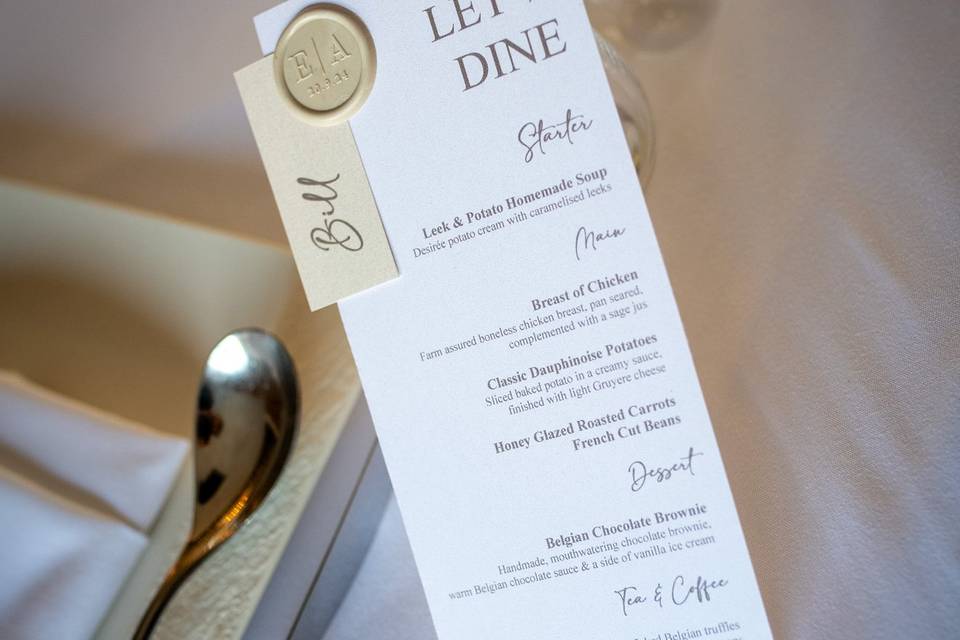 E|A
Bill
DINE
Starter
Leek & Potato Homemade Soup
Desirée potato cream with caramelised leeks
Main
Breast of Chicken
Farm assured boneless chicken breast, pan seared,
complemented with a sage jus
Classic Dauphinoise Potatoes
Sliced baked potato in a creamy sauce,
finished with light Gruyere cheese
Honey Glazed Roasted Carrots
French Cut Beans
Dessert
Belgian Chocolate Brownie
Handmade, mouthwatering chocolate brownie,
warm Belgian chocolate sauce & a side of vanilla ice cream
Tea & Coffee
Belgian truffles